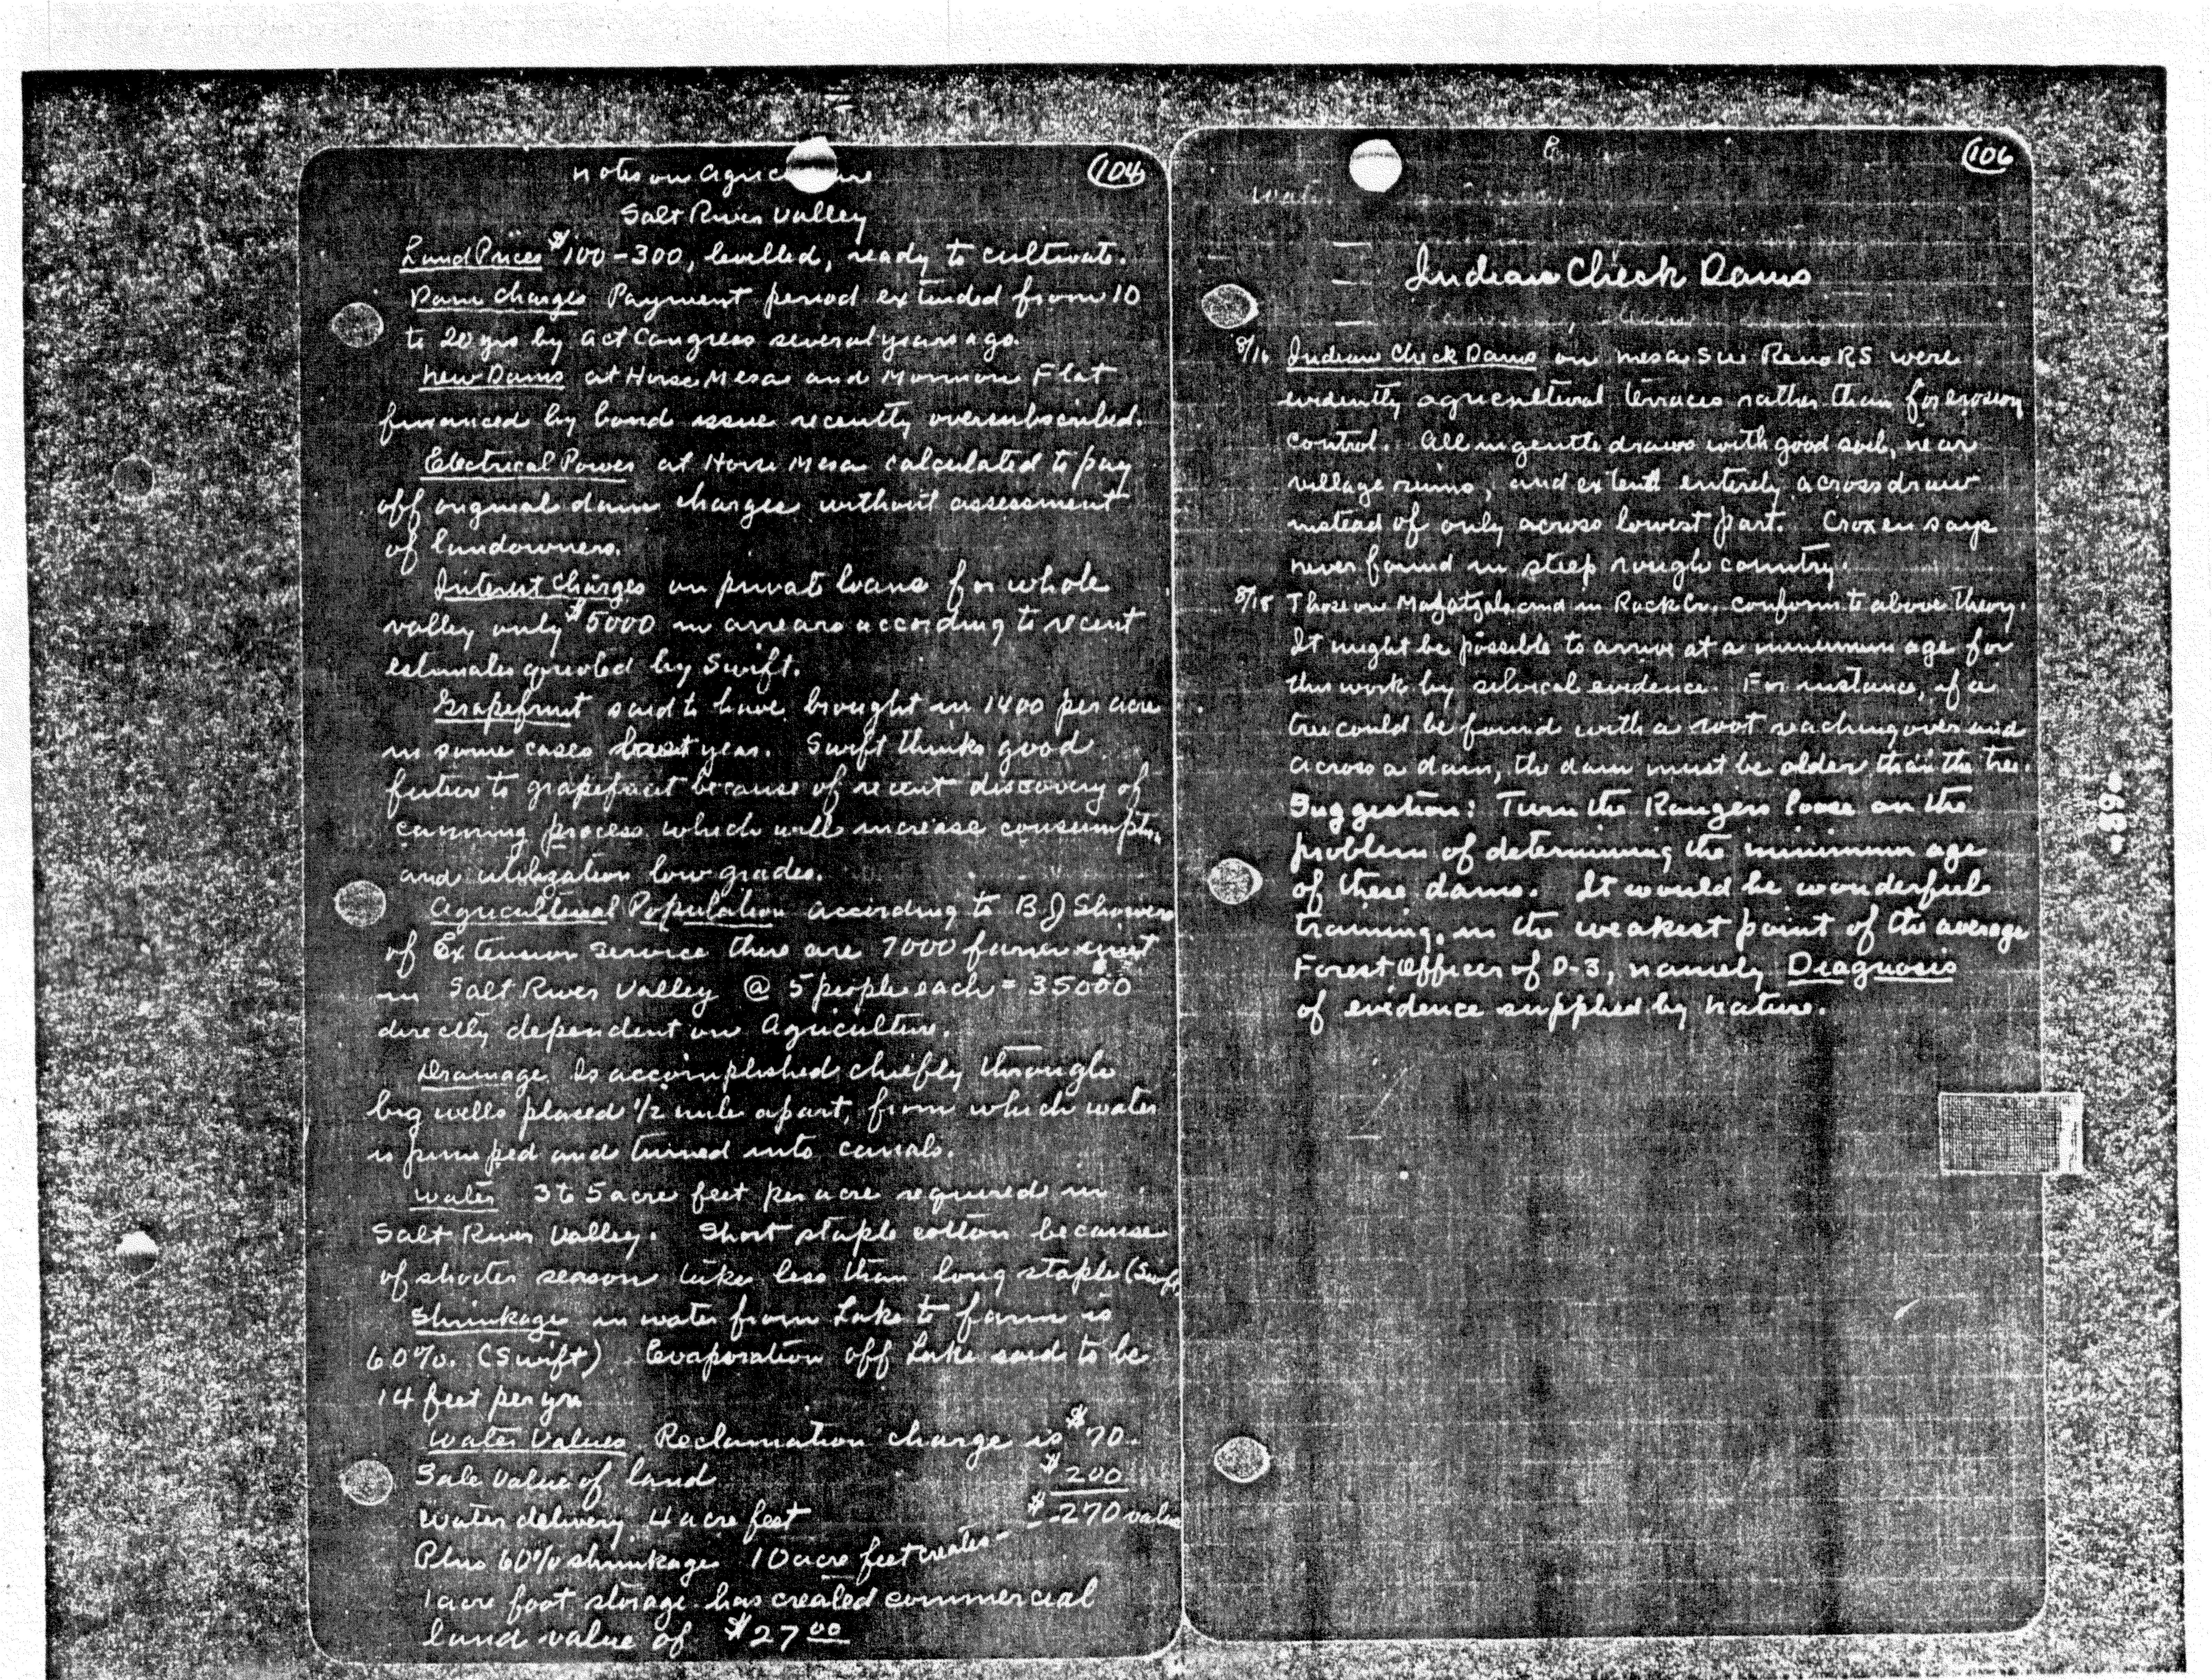 104
Notes on Agric ure
Salt River Valley
Land Prices $100-300, levelled, ready to cultivate.
Dam Charges Payment period extended from 10
to 20 yrs by act Congress several years ago.
New Dams at Horse Mesa and Mormon Flat
financed by bond issue recently oversubscribed.
Electrical Power at Horse Mesa calculated to pay
off original dam charges without assessment
of landowners.
Interest Charges on private loans for whole
valley only $5000 in arrears according to recent
estimates quoted by Swift.
Grapefruit said to have brought in 1400 per acre
in some cases last year. Swift thinks good
future to grapefruit because of recent discovery of
canning process which will increase consumptn.
and utilization low grades.
Agricultural Population according to B J Showers
of Extension Service there are 7000 farm
in Salt River Valley @ 5 people each = 35000
directly dependent on Agriculture.
Drainage Is accomplished chiefly through
big wells placed 1/2 mile apart, from which water
is pumped and turned into canals.
Water 3 to 5 acre feet per acre required in
Salt River Valley. Short staple cotton because
of shorter season takes less than long staple (Swift)
Shrinkage in water from Lake to farm is
60%. (Swift) Evaporation off Lake said to be
14 feet per yr.
Water Values Reclamation charge is $70.
Sale value of land $200
Water delivery 4 acre feet $270 value
Plus 60% shrinkage 10 acre feet creates-
1 acre foot storage has created commercial
land value of $27 00
106
Indian Check Dams
8/16 Indian Check Dams on mesa SW Reno RS were
evidently agricultural terraces rather than for erosion
control. All in gentle draws with good soil, near
village ruins, and extend entirely across draw
instead of only across lowest part. Croxen says
never found in steep rough country.
8/18 Those on Mazatzals and in Rock Cr. conform to above theory.
It might be possible to arrive at a minimum age for
this work by silvical evidence. For instance, if a
tree could be found with a root reaching over and
across a dam, the dam must be older than the tree.
Suggestion: Turn the Rangers loose on the
problem of determining the minimum age
of these dams. It would be wonderful
training, in the weakest point of the average
Forest Officer of D-3, namely Diagnosis
of evidence supplied by nature.